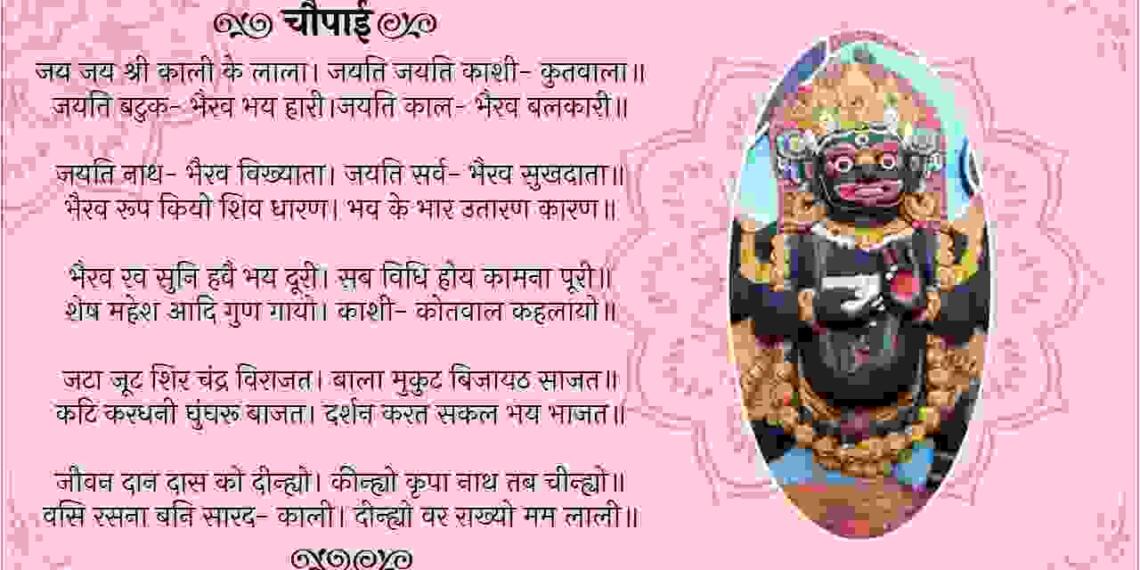 चौपाई
जय जय श्री काली के लाला। जयति जयति काशी- कुतवाला॥
जयति बटुक- भैरव भय हारी।जयति काल- भैरव बलकारी॥
जयति नाथ- भैरव विख्याता। जयति सर्व- भैरव सुखदाता॥
भैरव रूप कियो शिव धारण। भव के भार उतारण कारण॥
भैरव रव सुनि हवै भय दूरी। सब विधि होय कामना पूरी॥
शेष महेश आदि गुण गायो। काशी- कोतवाल कहलायो॥
जटा जूट शिर चंद्र विराजत। बाला मुकुट बिजायठ साजत॥
कटि करधनी घुंघरू बाजत। दर्शन करत सकल भय भाजत॥
जीवन दान दास को दीन्ह्यो। कीन्ह्यो कृपा नाथ तब चीन्ह्यो॥
वसि रसना बनि सारद- काली। दीन्ह्यो वर राख्यो मम लाली॥